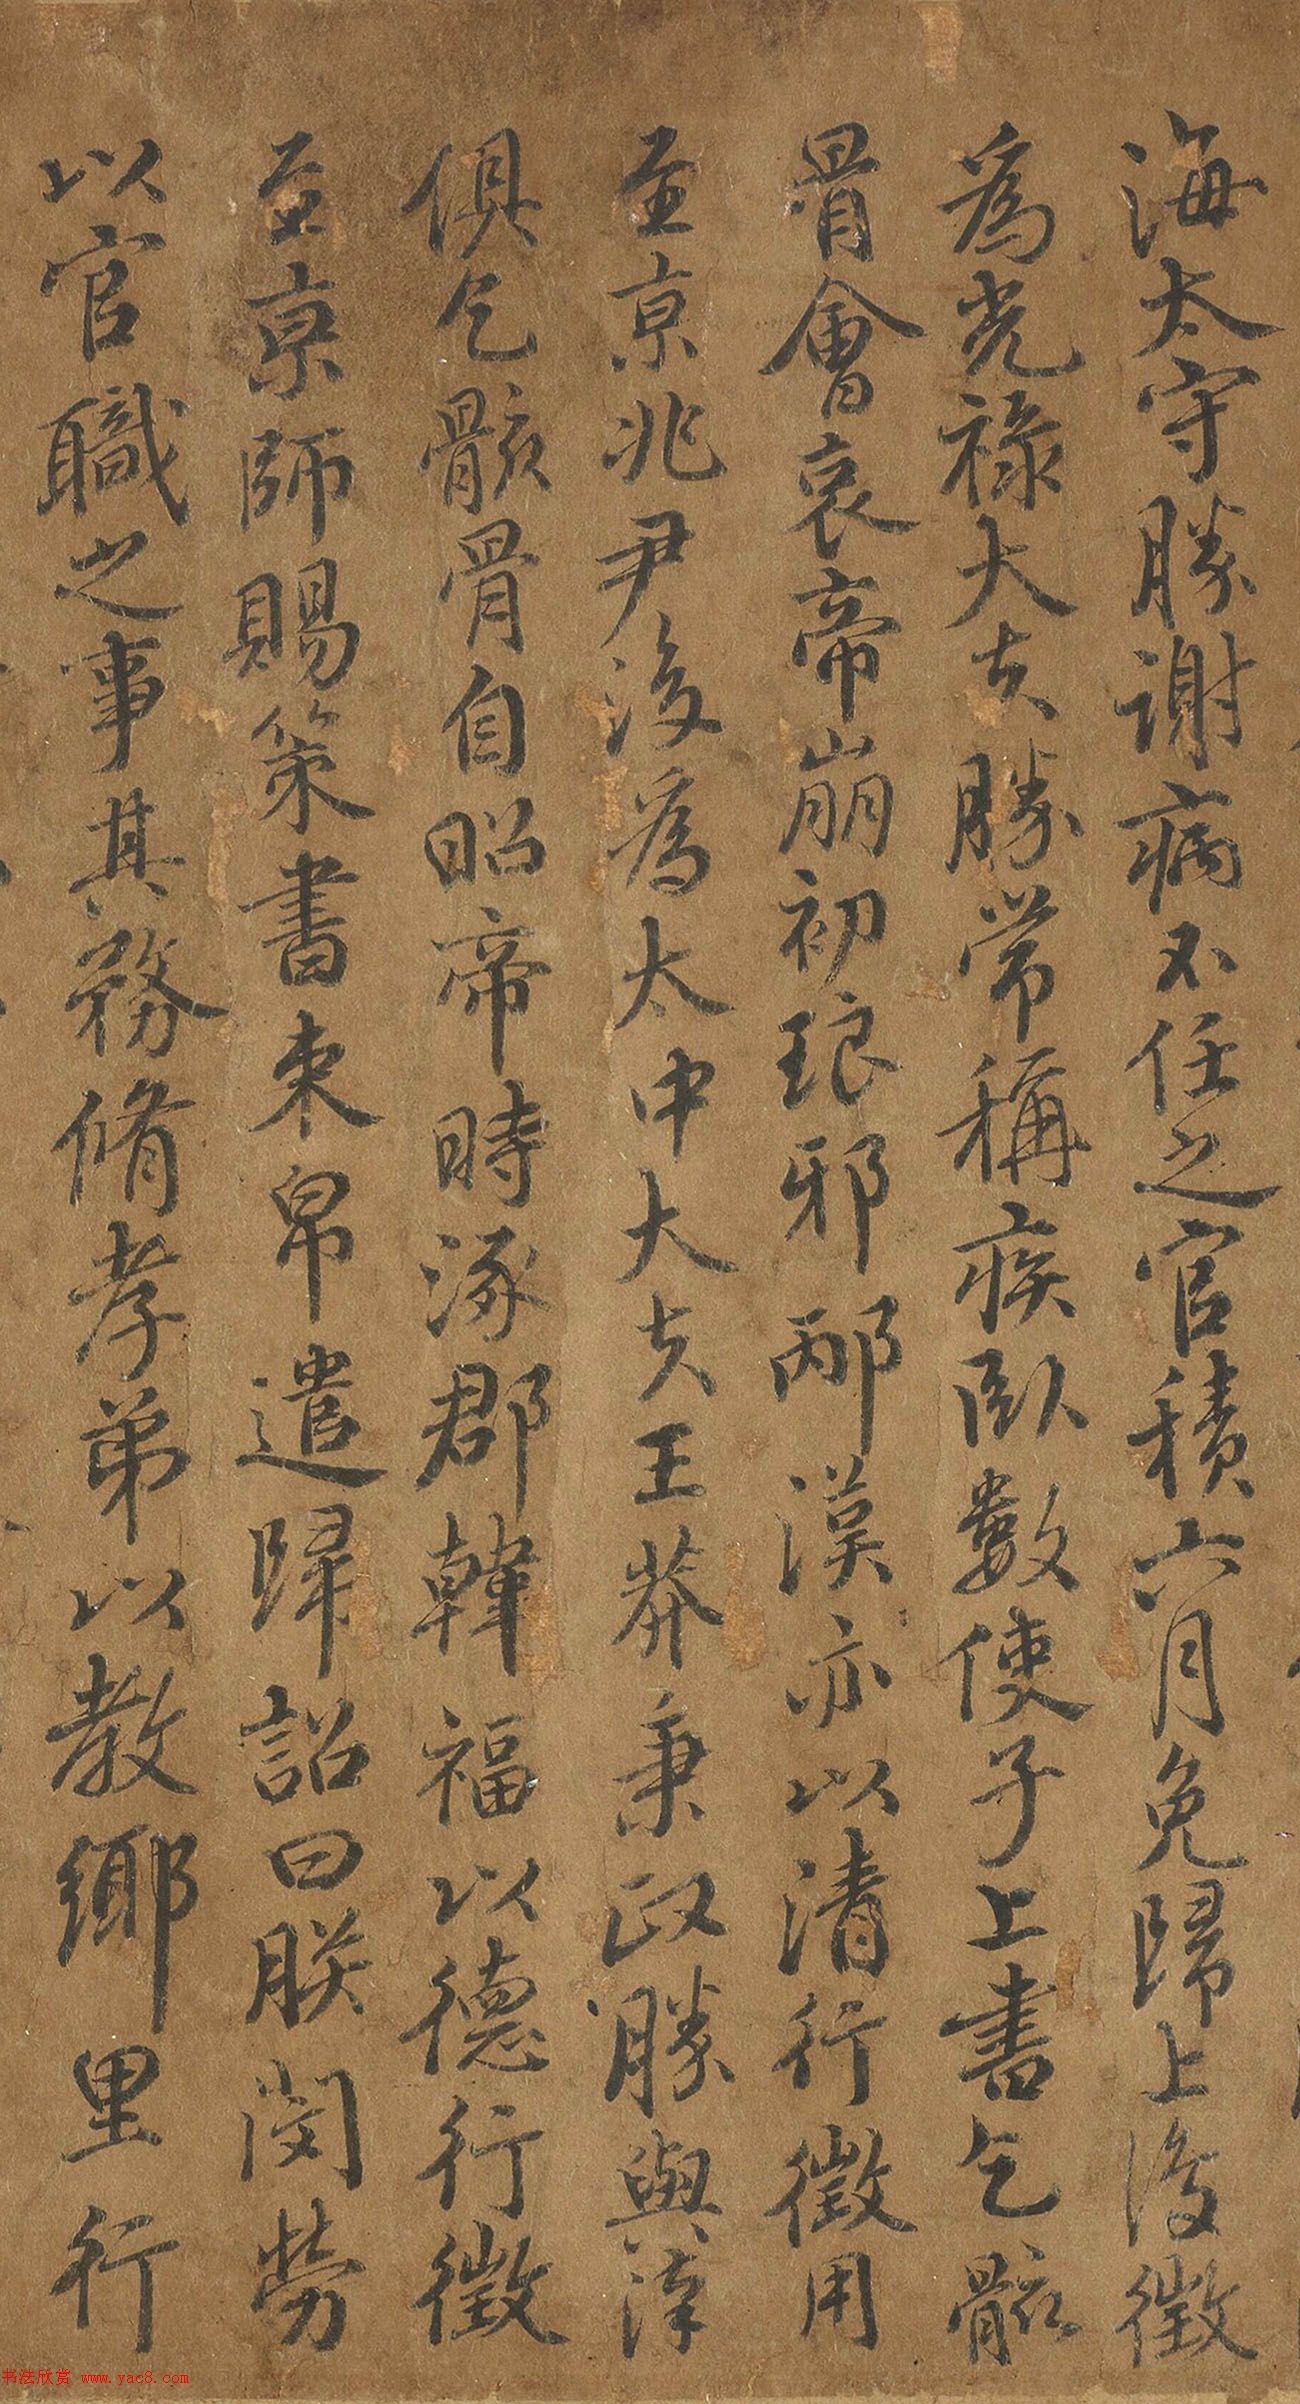 海太守勝謝病不任之官積六月免歸上復徵
為光祿大夫勝常稱疾臥數使子上書乞骸
骨會哀帝崩初琅邪邴漢亦以清行徵用
至京兆尹後為太中大夫王莽秉政勝與漢
俱乞骸骨自昭帝時涿郡韓福以德行徵
至京師賜策書束帛遣歸詔曰朕閔勞
以官職之事其務脩孝弟以教鄉里行
书法欣赏 www.yac8.com